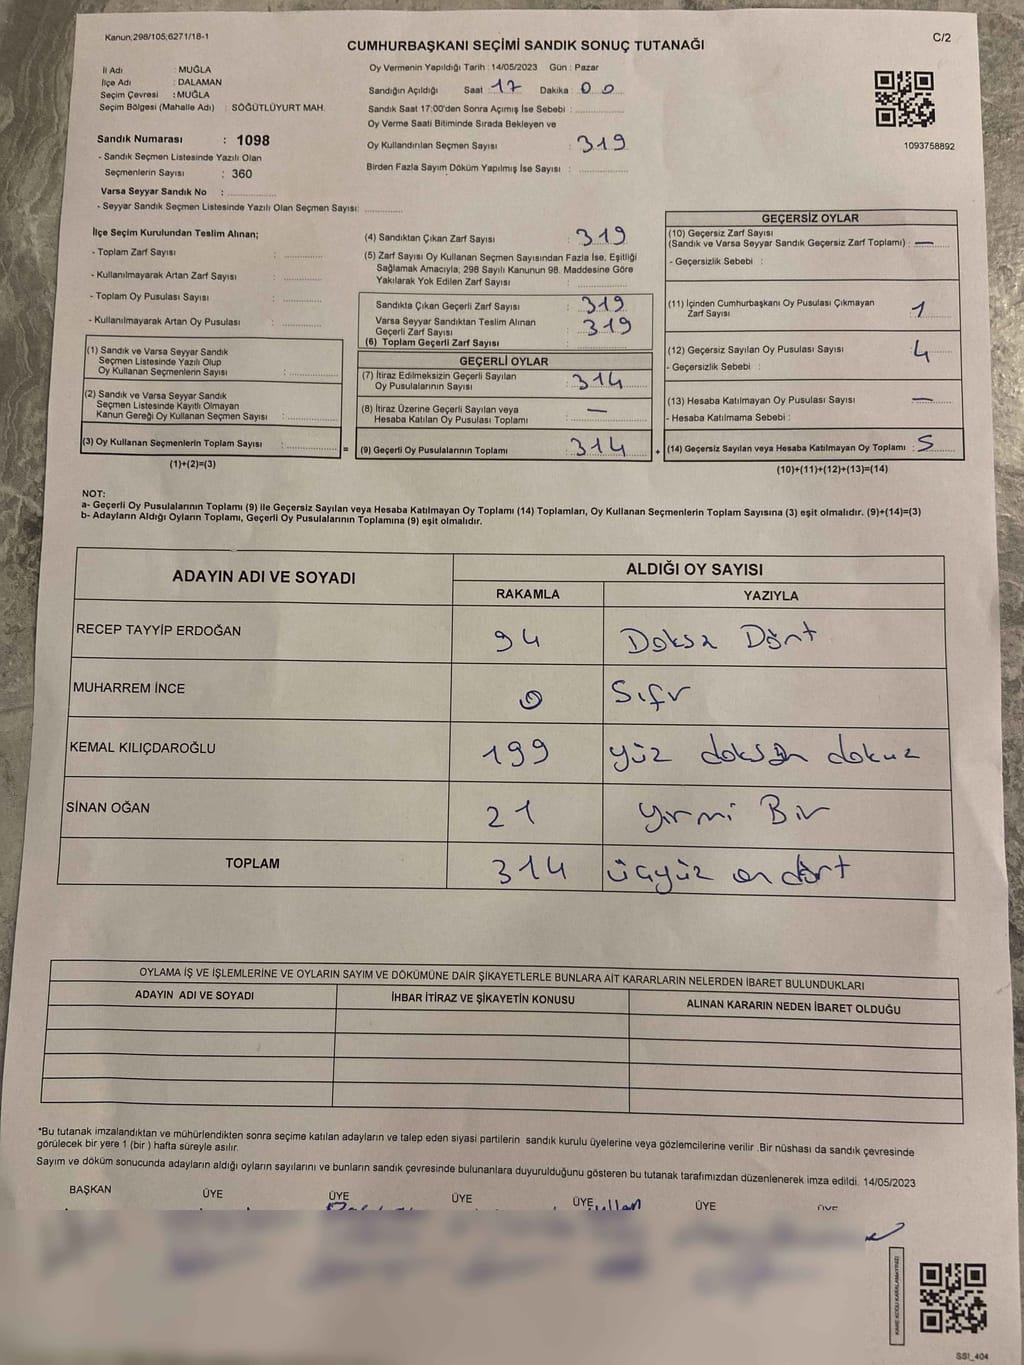 Kanun;298/105;6271/18-1
C/2
CUMHURBAŞKANI SEÇİMİ SANDIK SONUÇ TUTANAĞI
İl Adı : MUĞLA
İlçe Adı : DALAMAN
Seçim Çevresi : MUĞLA
Seçim Bölgesi (Mahalle Adı) : SÖĞÜTLÜYURT MAH.
Oy Vermenin Yapıldığı Tarih : 14/05/2023 Gün : Pazar
Sandığın Açıldığı Saat 17 Dakika : 00
Sandık Saat 17:00'den Sonra Açımış İse Sebebi :
Oy Verme Saati Bitiminde Sırada Bekleyen ve
Oy Kullandırılan Seçmen Sayısı : 319
Birden Fazla Sayım Döküm Yapılmış İse Sayısı :
1093758892
Sandık Numarası : 1098
- Sandık Seçmen Listesinde Yazılı Olan
Seçmenlerin Sayısı : 360
Varsa Seyyar Sandık No :
- Seyyar Sandık Seçmen Listesinde Yazılı Olan Seçmen Sayısı:
İlçe Seçim Kurulundan Teslim Alınan;
- Toplam Zarf Sayısı :
- Kullanılmayarak Artan Zarf Sayısı :
- Toplam Oy Pusulası Sayısı :
- Kullanılmayarak Artan Oy Pusulası :
(1) Sandık ve Varsa Seyyar Sandık
Seçmen Listesinde Yazılı Olup
Oy Kullanan Seçmenlerin Sayısı :
(2) Sandık ve Varsa Seyyar Sandık
Seçmen Listesinde Kayıtlı Olmayan
Kanun Gereği Oy Kullanan Seçmen Sayısı :
(3) Oy Kullanan Seçmenlerin Toplam Sayısı :
(1)+(2)=(3)
(4) Sandıktan Çıkan Zarf Sayısı : 319
(5) Zarf Sayısı Oy Kullanan Seçmen Sayısından Fazla İse, Eşitliği
Sağlamak Amacıyla; 298 Sayılı Kanunun 98. Maddesine Göre
Yakılarak Yok Edilen Zarf Sayısı :
Sandıkta Çıkan Geçerli Zarf Sayısı : 319
Varsa Seyyar Sandıktan Teslim Alınan
Geçerli Zarf Sayısı : 319
(6) Toplam Geçerli Zarf Sayısı :
GEÇERLİ OYLAR
(7) İtiraz Edilmeksizin Geçerli Sayılan
Oy Pusulalarının Sayısı : 314
(8) İtiraz Üzerine Geçerli Sayılan veya
Hesaba Katılan Oy Pusulası Toplamı : —
= (9) Geçerli Oy Pusulalarının Toplamı : 314
GEÇERSİZ OYLAR
(10) Geçersiz Zarf Sayısı
(Sandık ve Varsa Seyyar Sandık Geçersiz Zarf Toplamı) : —
- Geçersizlik Sebebi :
(11) İçinden Cumhurbaşkanı Oy Pusulası Çıkmayan
Zarf Sayısı : 1
(12) Geçersiz Sayılan Oy Pusulası Sayısı : 4
- Geçersizlik Sebebi :
(13) Hesaba Katılmayan Oy Pusulası Sayısı : —
- Hesaba Katılmama Sebebi :
+ (14) Geçersiz Sayılan veya Hesaba Katılmayan Oy Toplamı : 5
(10)+(11)+(12)+(13)=(14)
NOT:
a- Geçerli Oy Pusulalarının Toplamı (9) ile Geçersiz Sayılan veya Hesaba Katılmayan Oy Toplamı (14) Toplamları, Oy Kullanan Seçmenlerin Toplam Sayısına (3) eşit olmalıdır. (9)+(14)=(3)
b- Adayların Aldığı Oyların Toplamı, Geçerli Oy Pusulalarının Toplamına (9) eşit olmalıdır.
ADAYIN ADI VE SOYADI
ALDIĞI OY SAYISI
RAKAMLA YAZIYLA
RECEP TAYYİP ERDOĞAN 94 Doksn Dört
MUHARREM İNCE 0 Sıfır
KEMAL KILIÇDAROĞLU 199 yüz doksan dokuz
SİNAN OĞAN 21 Yirmi Bir
TOPLAM 314 üçyüz on dört
OYLAMA İŞ VE İŞLEMLERİNE VE OYLARIN SAYIM VE DÖKÜMÜNE DAİR ŞİKAYETLERLE BUNLARA AİT KARARLARIN NELERDEN İBARET BULUNDUKLARI
ADAYIN ADI VE SOYADI İHBAR İTİRAZ VE ŞİKAYETİN KONUSU ALINAN KARARIN NEDEN İBARET OLDUĞU
*Bu tutanak imzalandıktan ve mühürlendikten sonra seçime katılan adayların ve talep eden siyasi partilerin sandık kurulu üyelerine veya gözlemcilerine verilir .Bir nüshası da sandık çevresinde
görülecek bir yere 1 (bir ) hafta süreyle asılır.
Sayım ve döküm sonucunda adayların aldığı oyların sayılarını ve bunların sandık çevresinde bulunanlara duyurulduğunu gösteren bu tutanak tarafımızdan düzenlenerek imza edildi. 14/05/2023
BAŞKAN ÜYE ÜYE ÜYE ÜYE ÜYE ÜYE
SSI_404